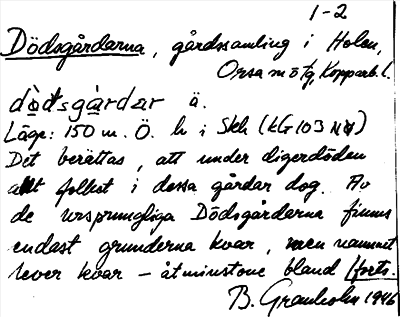 1-2
Dödsgårdarna, gårdssamling i Holen,
Orsa m ötg, Kopparb. l.
dödsgårdar ä.
Läge: 150 m. Ö. h i Skh (kG103 NV)
Det berättas, att under digerdöden
allt folket i dessa gårdar dog. Av
de ursprungliga Dödsgårdarna finns
endast grunderna kvar, men namnet
lever kvar – åtminstone bland /forts.
B. Granholm 1946